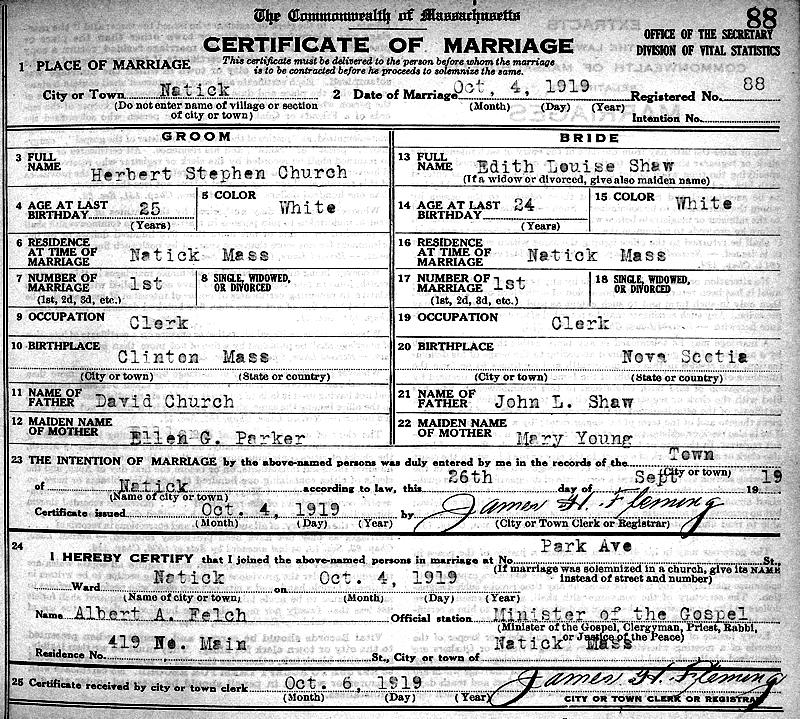 The Commonwealth of Massachusetts
88
CERTIFICATE OF MARRIAGE
OFFICE OF THE SECRETARY
DIVISION OF VITAL STATISTICS
1 PLACE OF MARRIAGE
This certificate must be delivered to the person before whom the marriage
is to be contracted before he proceeds to solemnize the same.
City or Town Natick 2 Date of Marriage Oct, 4, 1919 Registered No. 88
(Do not enter name of village or section
of city or town)
(Month) (Day) (Year)
Intention No.
GROOM
BRIDE
3 FULL NAME Herbert Stephen Church
13 FULL NAME Edith Louise Shaw
(If a widow or divorced, give also maiden name)
4 AGE AT LAST BIRTHDAY 25 (Years)
5 COLOR White
14 AGE AT LAST BIRTHDAY 24 (Years)
15 COLOR White
6 RESIDENCE AT TIME OF MARRIAGE Natick Mass
16 RESIDENCE AT TIME OF MARRIAGE Natick Mass
7 NUMBER OF MARRIAGE 1st
(1st, 2d, 3d, etc.)
8 SINGLE, WIDOWED, OR DIVORCED
17 NUMBER OF MARRIAGE 1st
(1st, 2d, 3d, etc.)
18 SINGLE, WIDOWED, OR DIVORCED
9 OCCUPATION Clerk
19 OCCUPATION Clerk
10 BIRTHPLACE Clinton Mass
(City or town) (State or country)
20 BIRTHPLACE Nova Scotia
(City or town) (State or country)
11 NAME OF FATHER David Church
21 NAME OF FATHER John L. Shaw
12 MAIDEN NAME OF MOTHER Ellen G. Parker
22 MAIDEN NAME OF MOTHER Mary Young
23 THE INTENTION OF MARRIAGE by the above-named persons was duly entered by me in the records of the Town
(City or town)
of Natick according to law, this 26th day of Sept 19 19
(Name of city or town)
Certificate issued Oct. 4, 1919 by James H. Fleming
(Month) (Day) (Year)
(City or Town Clerk or Registrar)
24
I HEREBY CERTIFY that I joined the above-named persons in marriage at No. Park Ave St.,
(If marriage was solemnized in a church, give its NAME
instead of street and number)
Ward Natick on Oct. 4, 1919
(Name of city or town) (Month) (Day) (Year)
Name Albert A. Felch Official station Minister of the Gospel
(Minister of the Gospel, Clergyman, Priest, Rabbi,
or Justice of the Peace)
Residence No. 419 No. Main St., City or town of Natick Mass
25 Certificate received by city or town clerk Oct. 6, 1919 James H. Fleming
(Month) (Day) (Year)
CITY OR TOWN CLERK OR REGISTRAR